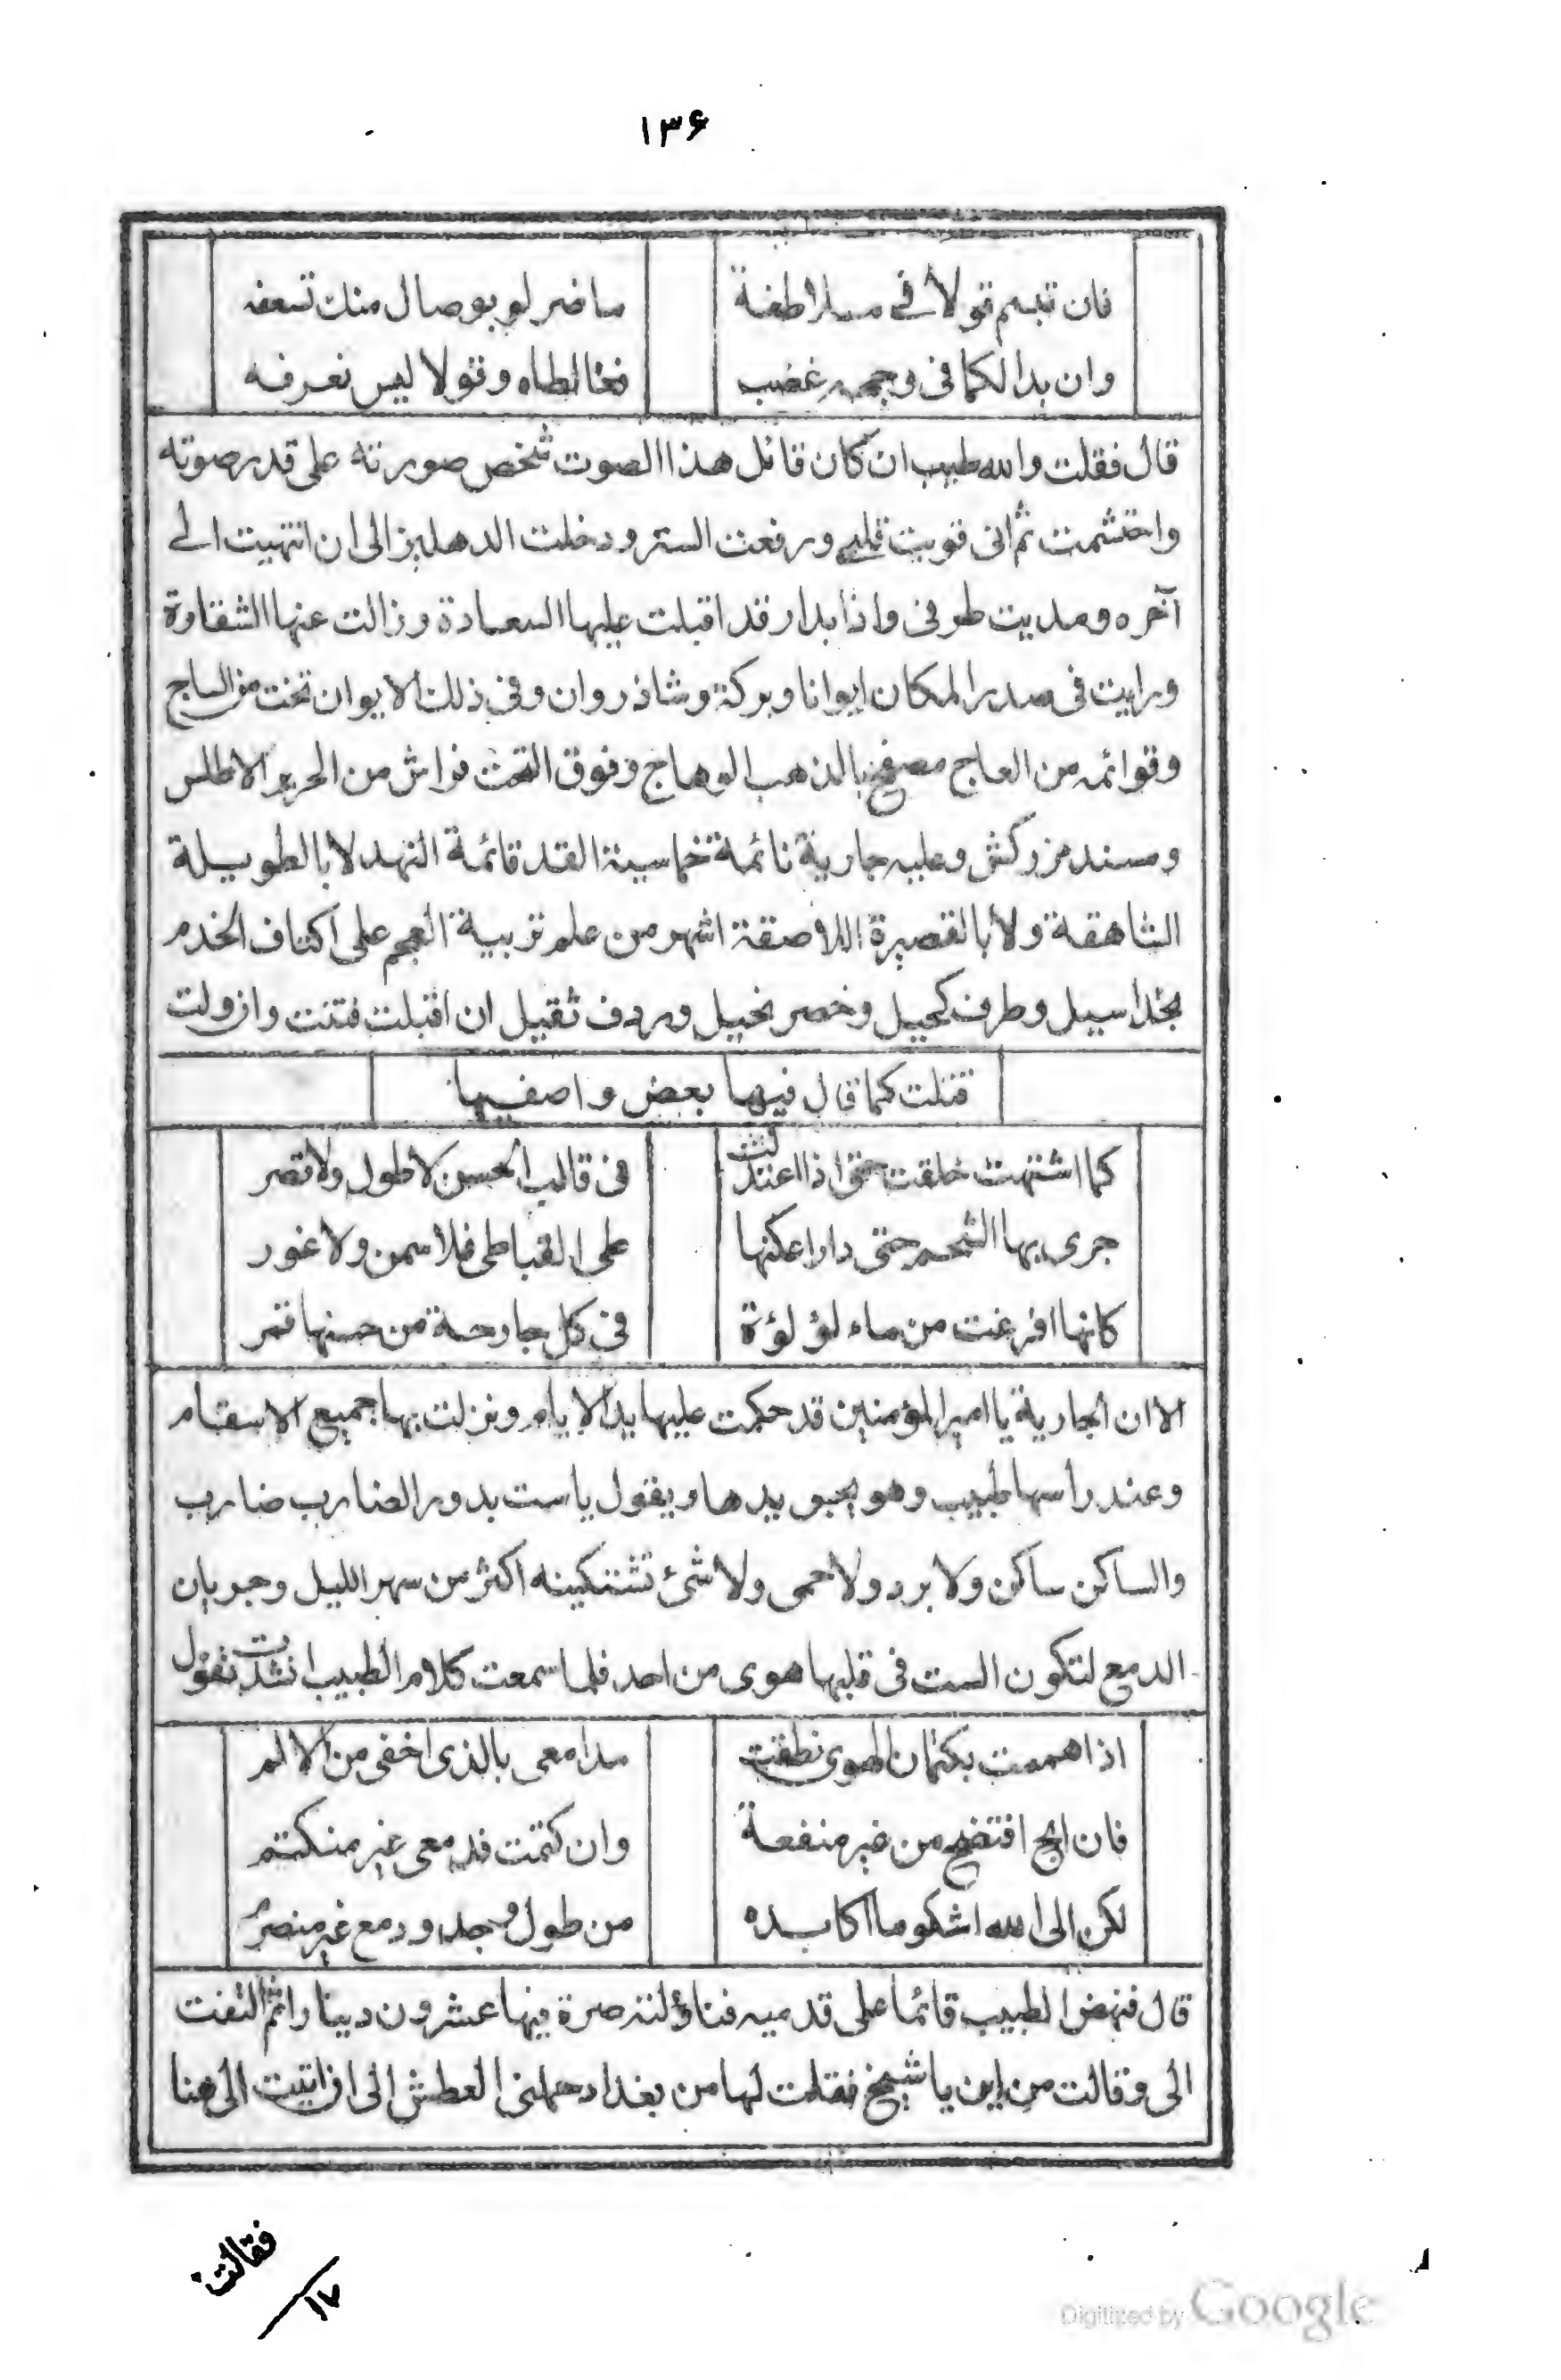 ١٣۶
فان تبسم قولا في ملاطفة ما ضر لو بوصال منك تسعفه
وان بدا لكما فى وجهه غضب فغالطاه وقولا ليس نعرفه
قال فقلت والله طيب ان كان قائل هذا الصوت شخص صورته على قدر صوته
واحتشمت ثم انى قويت قلبي ورفعت الستر ودخلت الدهليز الى ان انتهيت الى
آخره ومديت طرفى واذا بدار قد اقبلت عليها السعادة وزالت عنها الشقاوة
ورايت فى صدر المكان ايوانا وبركة وشاذروان وفى ذلك الايوان تخت من الساج
وقوائمه من العاج مصفح بالذهب الوهاج وفوق التخت فراش من الحرير الاطلس
ومسند مزركش وعليه جارية نائمة خماسية القد قائمة النهد لا بالطويلة
الشاهقة ولا بالقصيرة اللاصقة اشهر من علم تربية العجم على اكتاف الخدم
بخد اسيل وطرف كحيل وخصر نحيل وردف ثقيل ان اقبلت فتنت وان ولت
قتلت كما قال فيها بعض واصفيها
كما اشتهت خلقت حتى اذا اعتدلت فى قالب الحسن لا طول ولا قصر
جرى بها الشحم حتى دار اعكنها على القباطى فلا سمن ولا غور
كانها افرغت من ماء لؤلؤة فى كل جارحة من حسنها قمر
الا ان الجارية يا امير المؤمنين قد حكمت عليها يد الايام ونزلت بها جميع الاسقام
وعند رأسها طبيب وهو يجس يدها ويقول ياست بدور الضارب ضارب
والساكن ساكن ولا برد ولا حمى ولا شئ تشتكينه اكثر من سهر الليل وجريان
الدمع لتكون الست فى قلبها هوى من احد فلما سمعت كلام الطبيب انشدت تقول
اذا هممت بكتمان الهوى نطقت مدامعى بالذى اخفى من الالم
فان ابح افتضح من غير منفعة وان كتمت فدمعى غير منكتم
لكن الى الله اشكو ما اكابده من طول وجد ودمع غير منصرم
قال فنهض الطبيب قائما على قدميه فناولته صرة فيها عشرون دينارا ثم التفت
الى وقالت من اين يا شيخ فقلت لها من بغداد حملنى العطش الى ان اتيت الى هنا
فقالت
١٧
Digitized by Google